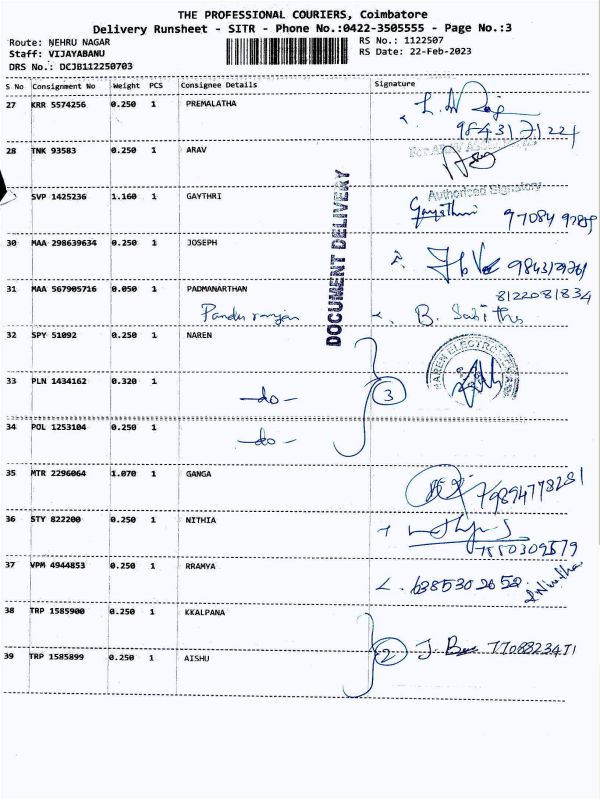 THE PROFESSIONAL COURIERS, Coimbatore
Delivery Runsheet - SITR - Phone No.:0422-3505555 - Page No.:3
Route: NEHRU NAGAR RS No.: 1122507
Staff: VIJAYABANU RS Date: 22-Feb-2023
DRS No.: DCJB112250703
S No Consignment No Weight PCS Consignee Details Signature
27 KRR 5574256 0.250 1 PREMALATHA
28 TNK 93583 0.250 1 ARAV
Authorised Signatory
SVP 1425236 1.160 1 GAYTHRI Gayathri
30 MAA 298639634 0.250 1 JOSEPH
8122081834
31 MAA 567905716 0.050 1 PADMANARTHAN
B. Sabitha
DOCUMENT DELIVERY
32 SPY 51092 0.250 1 NAREN
NAREN ELECTRO
33 PLN 1434162 0.320 1
-do- 3
34 POL 1253104 0.250 1
-do-
35 MTR 2296064 1.070 1 GANGA 79894778281
36 STY 822200 0.250 1 NITHIA
7550309579
37 VPM 4944853 0.250 1 RRAMYA
38 TRP 1585900 0.250 1 KKALPANA
39 TRP 1585899 0.250 1 AISHU 2